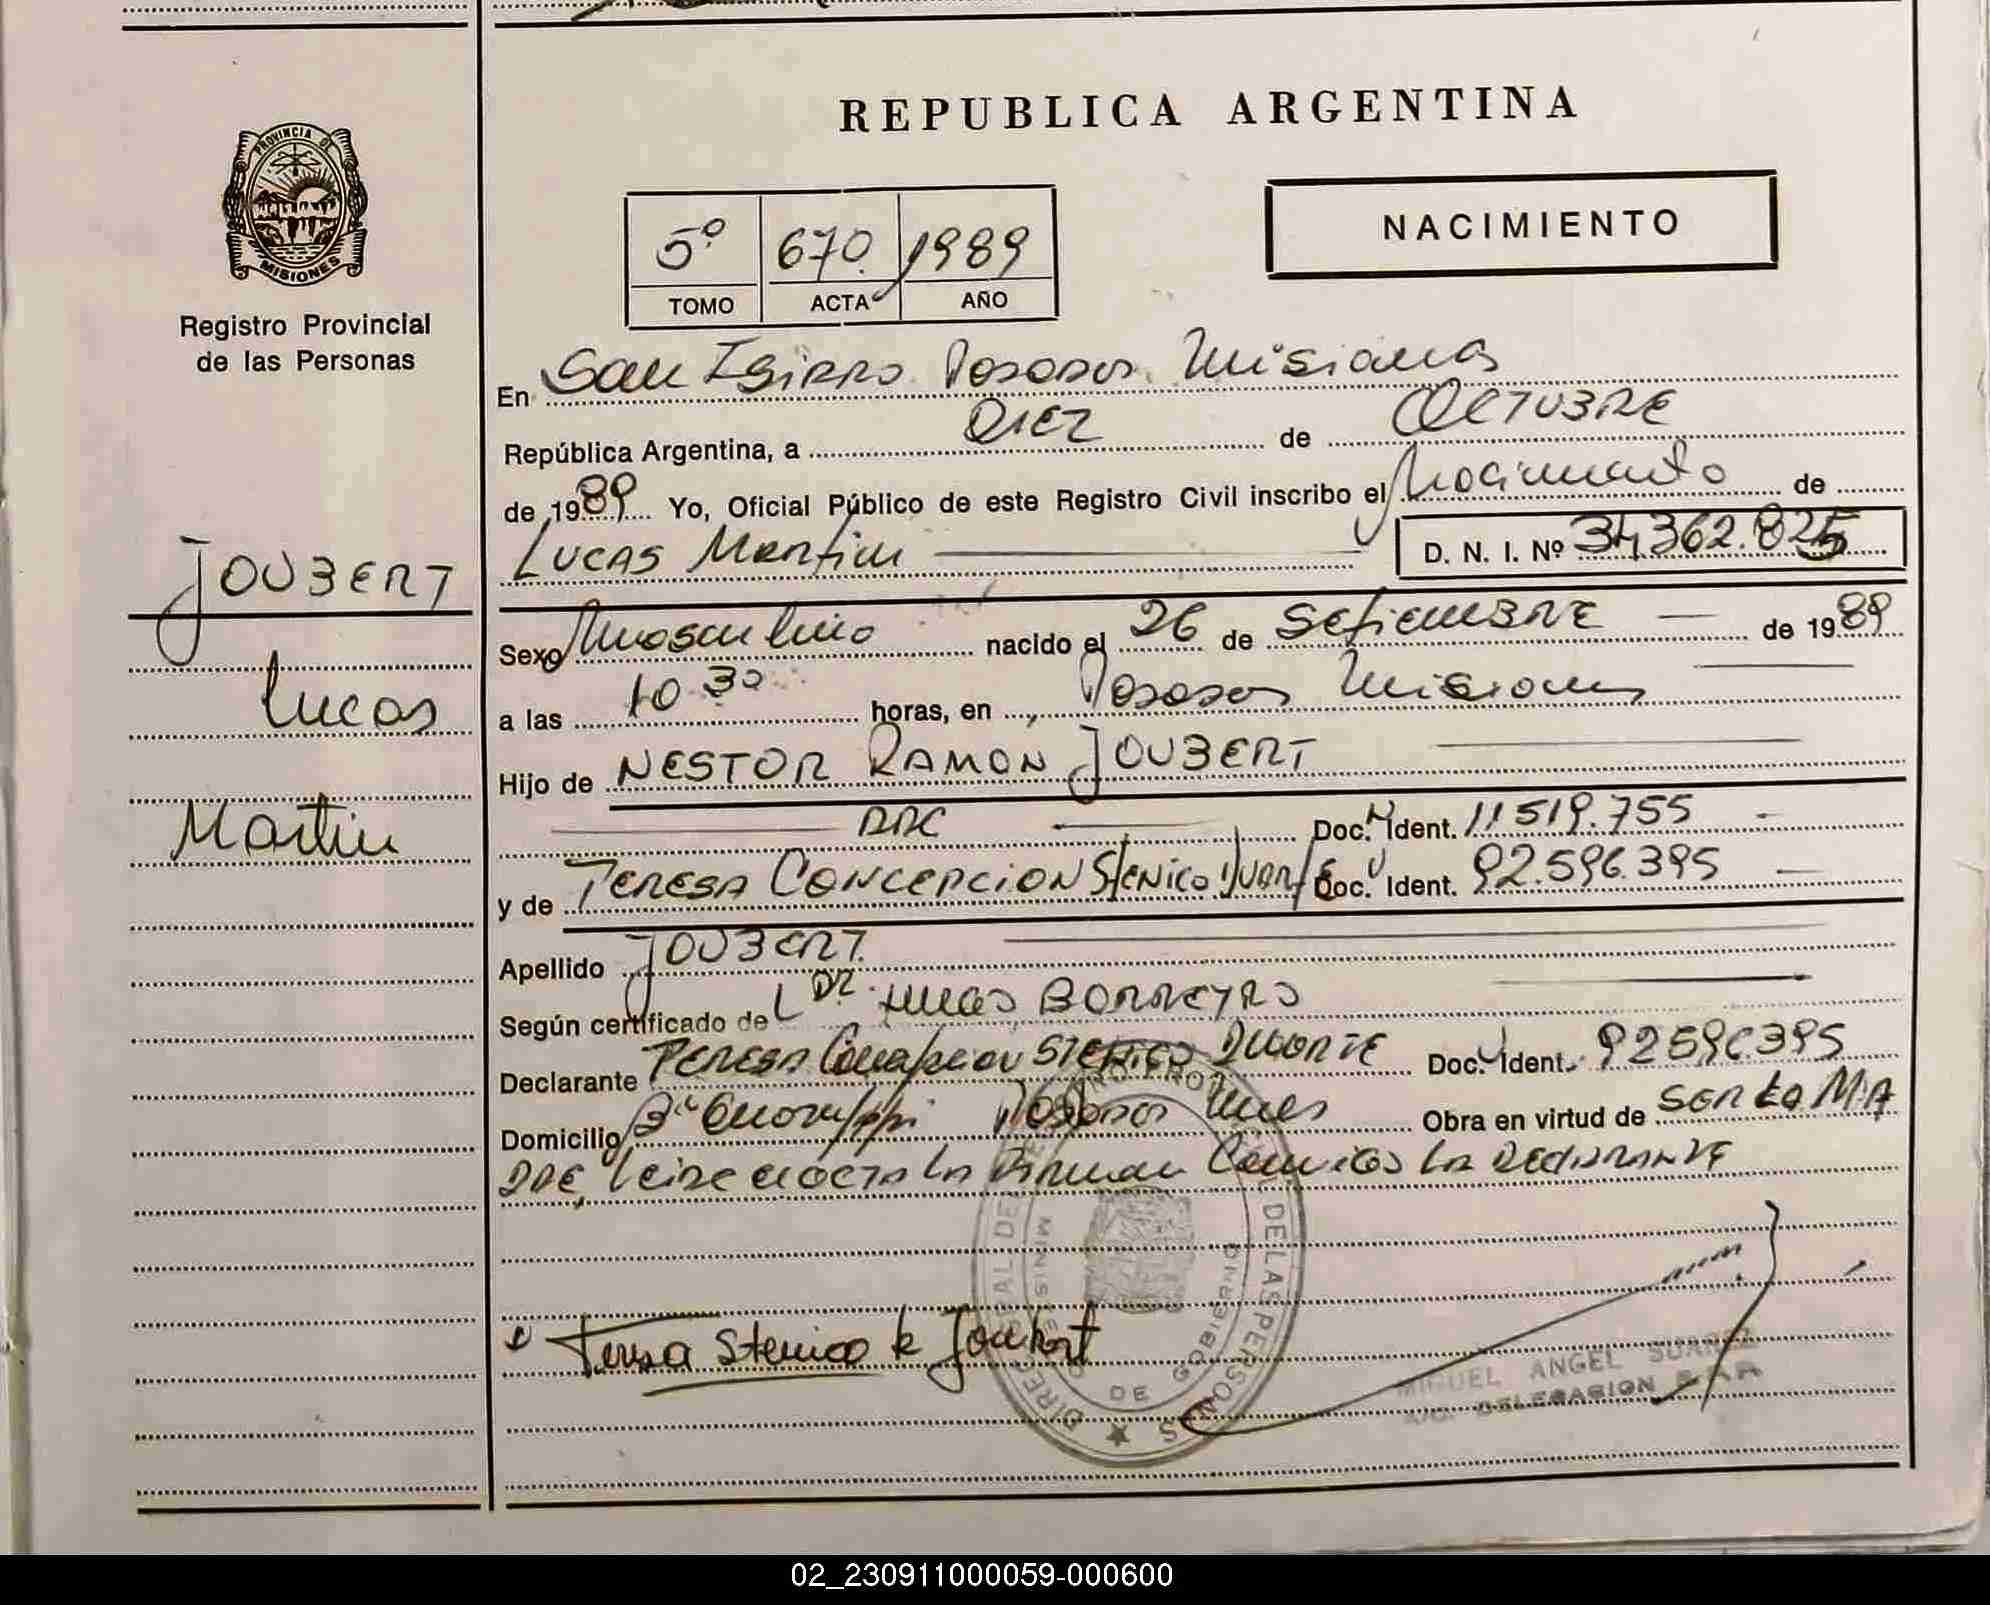 REPUBLICA ARGENTINA
NACIMIENTO
5º 670 1989
TOMO ACTA AÑO
PROVINCIA DE
MISIONES
Registro Provincial
de las Personas
JOUBERT
Lucas
Martin
En San Isidro Posadas Misiones
República Argentina, a DIEZ de OCTUBRE
de 1989 Yo, Oficial Público de este Registro Civil inscribo el Nacimiento de
LUCAS Martin D. N. I. Nº 34,362.825
Sexo Masculino nacido el 26 de Setiembre de 1989
a las 10 30 horas, en Posadas Misiones
Hijo de NESTOR RAMON JOUBERT
Doc. Ident. 11519.755
y de TERESA CONCEPCION Stenico Duarte Doc. Ident. 92.596.395
Apellido JOUBERT.
Según certificado de DR. Lucas BORREYRO
Declarante TERESA Concepcion STENICO DUARTE Doc. Ident. 92596395
Domicilio Posadas Mnes Obra en virtud de ser la MA
DRE, Leida el acta la Firman Conmigo LA DECLARANTE
Teresa Stenico de Joubert
DE LAS PERSONAS
DE GOBIERNO
MIGUEL ANGEL SUAREZ
A/C. DELEGACION
02_230911000059-000600